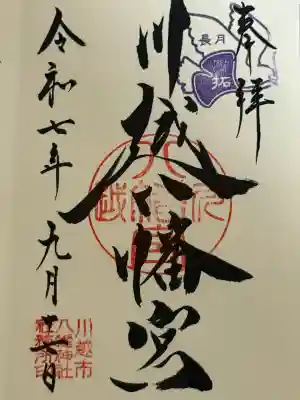 奉拝
長月
拓
川越八幡宮
令和七年九月
川越市
八幡神社
社務所印